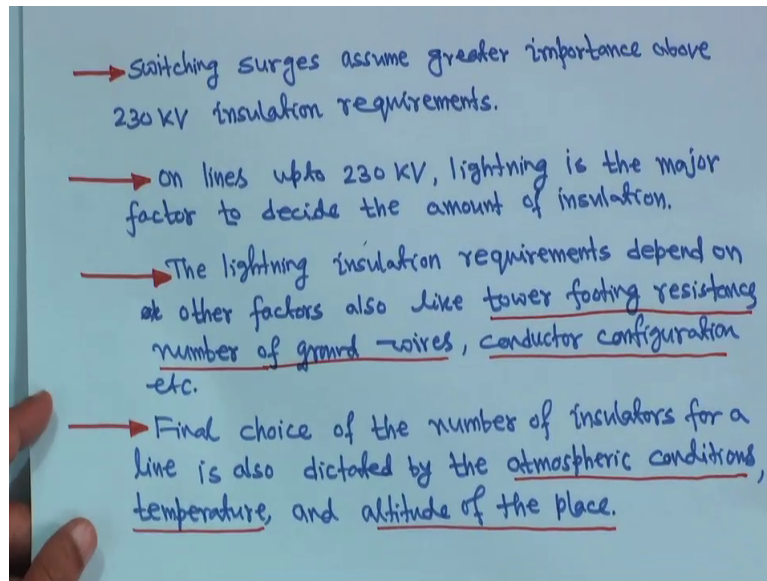 → Switching surges assume greater importance above
230 KV insulation requirements.
→ On lines upto 230 KV, lightning is the major
factor to decide the amount of insulation.
→ The lightning insulation requirements depend on
other factors also like tower footing resistance
number of ground wires, conductor configuration
etc.
→ Final choice of the number of insulators for a
line is also dictated by the atmospheric conditions,
temperature, and altitude of the place.